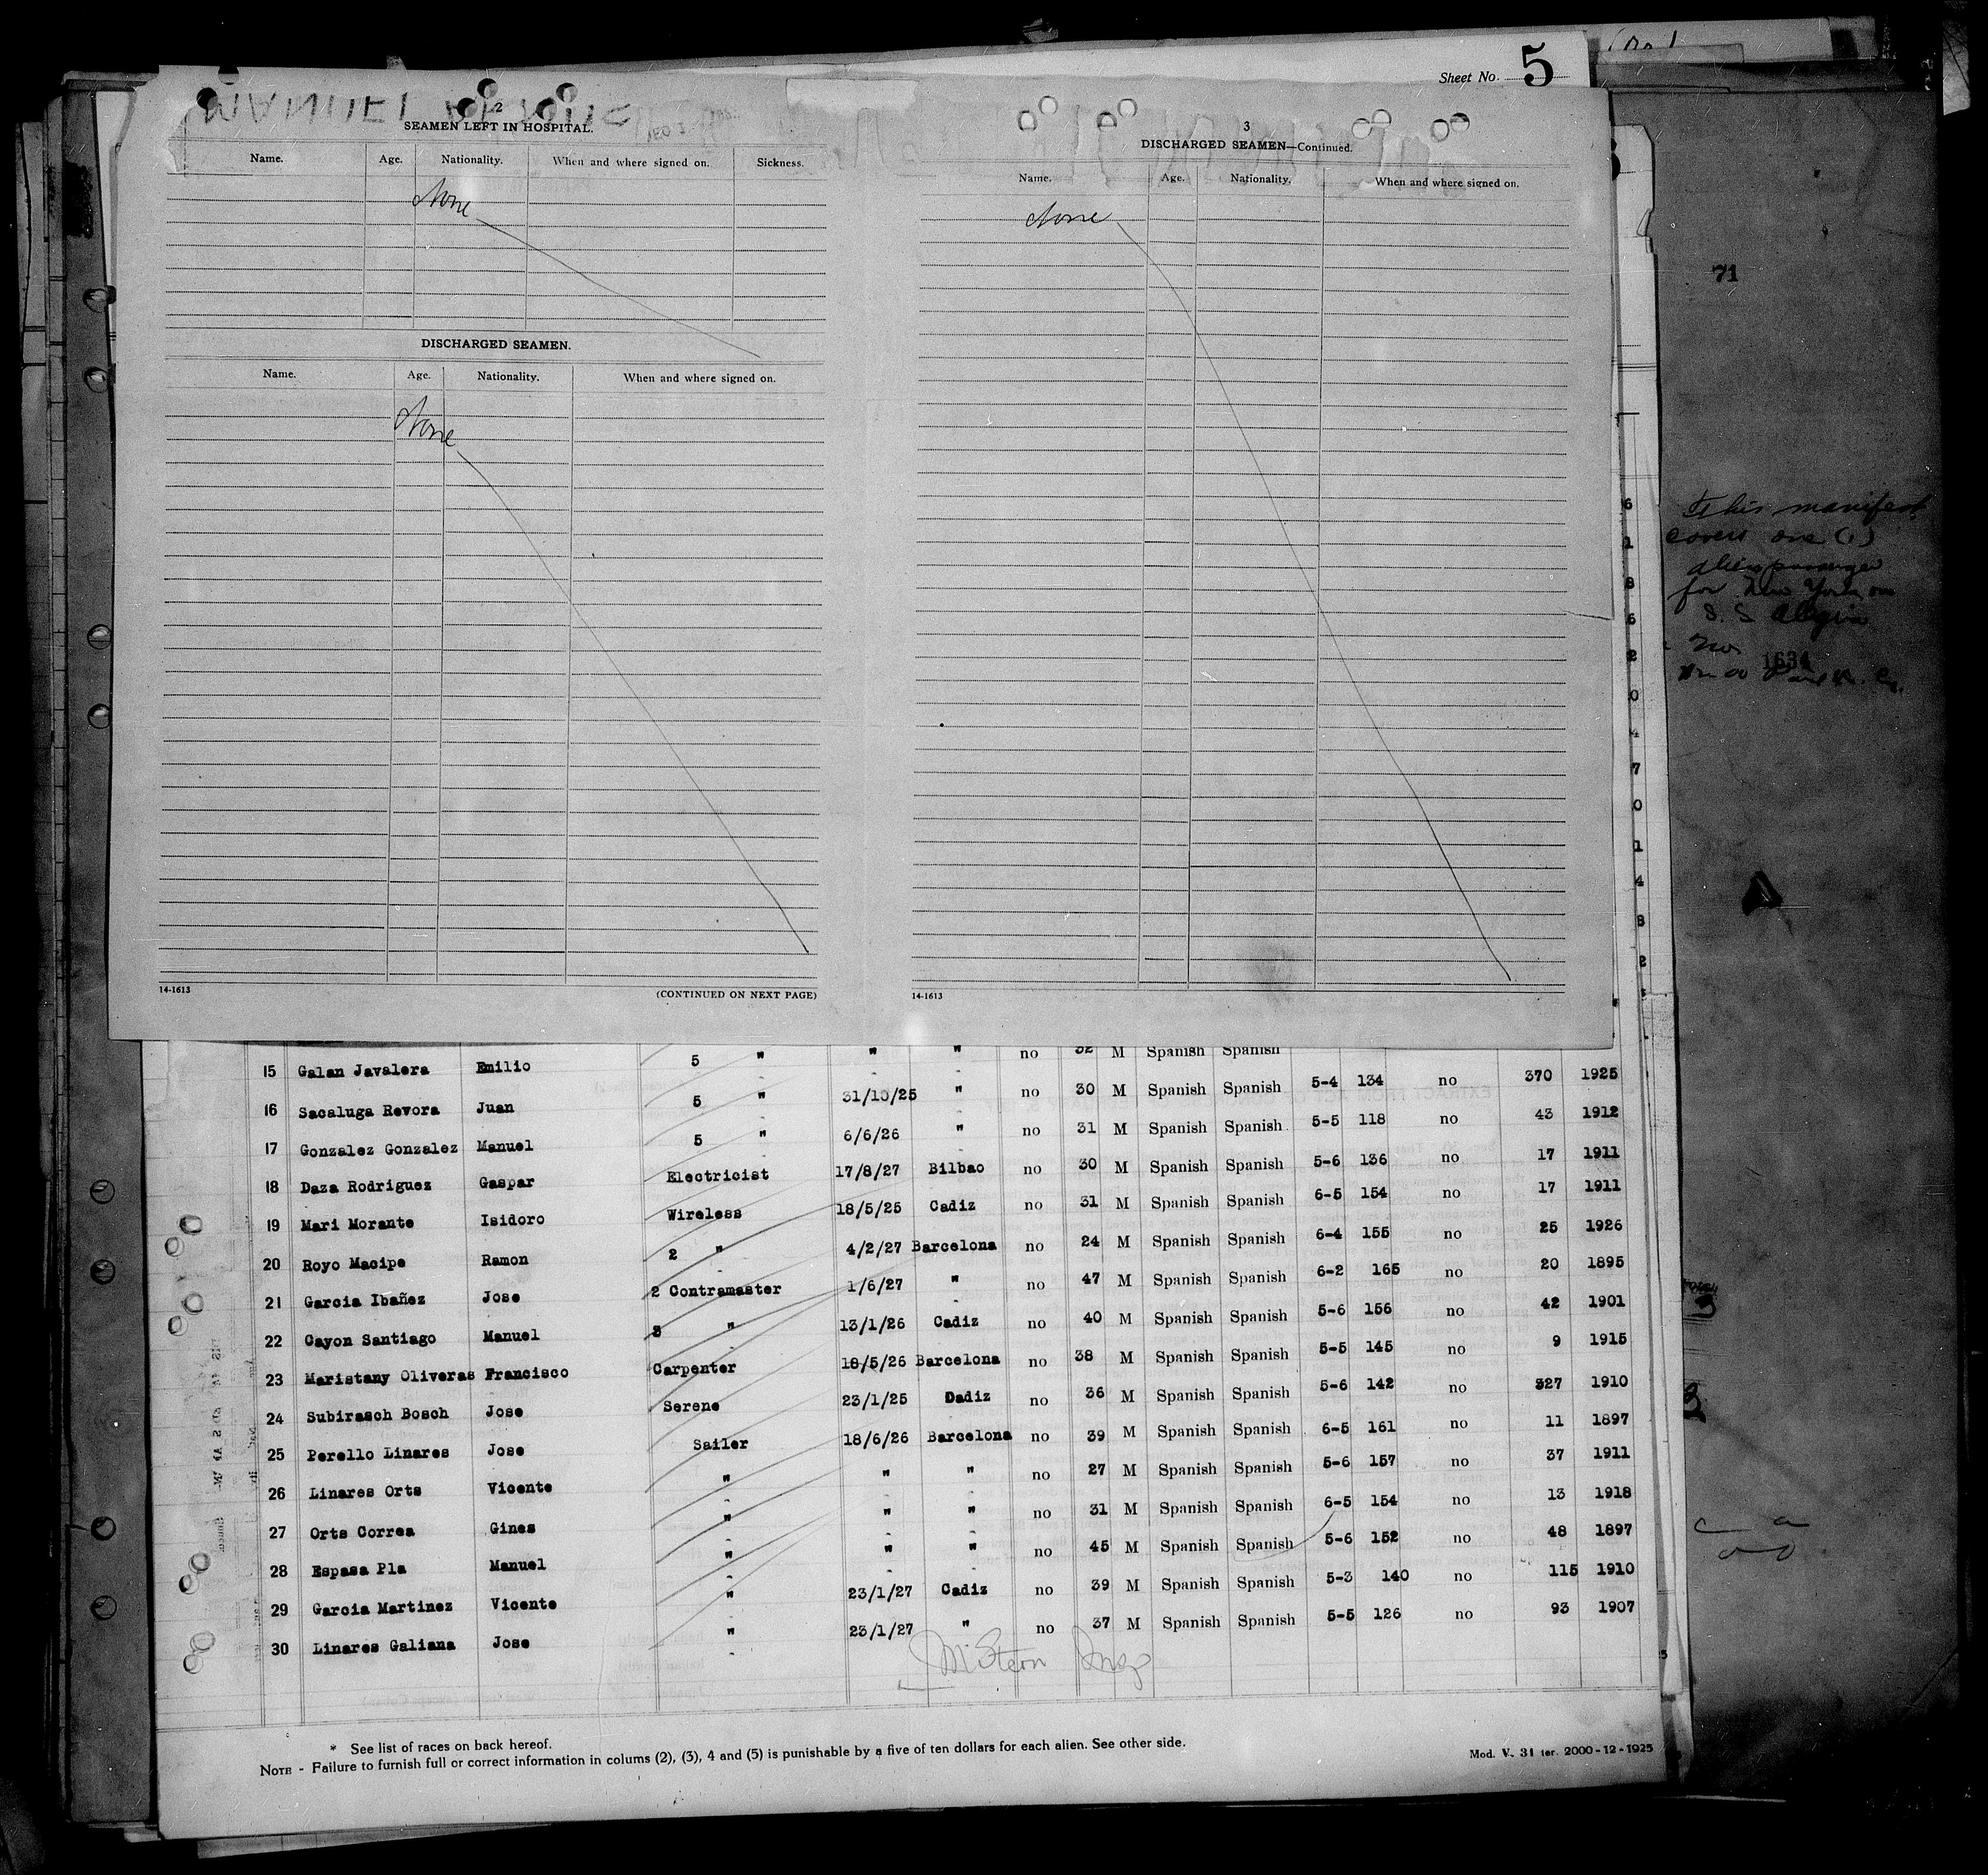 Sheet No. 5
2
SEAMEN LEFT IN HOSPITAL.
Name. Age. Nationality. When and where signed on. Sickness.
None
DISCHARGED SEAMEN.
Name. Age. Nationality. When and where signed on.
None
14-1613 (CONTINUED ON NEXT PAGE)
3
DISCHARGED SEAMEN—Continued.
Name. Age. Nationality. When and where signed on.
None
14-1613
71
This manifest
covers one (1)
alien passenger
for New York on
S. S
1634
15 Galan Javalera Emilio 5 " " " no 32 M Spanish Spanish
16 Sacaluga Revora Juan 5 " 31/10/25 " no 30 M Spanish Spanish 5-4 134 no 370 1925
17 Gonzalez Gonzalez Manuel 5 " 6/6/26 " no 31 M Spanish Spanish 5-5 118 no 43 1912
18 Daza Rodriguez Gaspar Electricist 17/8/27 Bilbao no 30 M Spanish Spanish 5-6 136 no 17 1911
19 Mari Morante Isidoro Wireless 18/5/25 Cadiz no 31 M Spanish Spanish 6-5 154 no 17 1911
20 Royo Macipe Ramon 2 " 4/2/27 Barcelona no 24 M Spanish Spanish 6-4 155 no 25 1926
21 Garcia Ibañez Jose 2 Contramaster 1/6/27 " no 47 M Spanish Spanish 6-2 165 no 20 1895
22 Cayon Santiago Manuel 3 " 13/1/26 Cadiz no 40 M Spanish Spanish 5-6 156 no 42 1901
23 Maristany Oliveras Francisco Carpenter 18/5/26 Barcelona no 38 M Spanish Spanish 5-5 145 no 9 1915
24 Subirasch Bosch Jose Serene 23/1/25 Dadiz no 36 M Spanish Spanish 5-6 142 no 327 1910
25 Perello Linares Jose Sailer 18/6/26 Barcelona no 39 M Spanish Spanish 6-5 161 no 11 1897
26 Linares Orts Vicente " " " no 27 M Spanish Spanish 5-6 157 no 37 1911
27 Orts Correa Gines " " " no 31 M Spanish Spanish 6-5 154 no 13 1918
28 Espasa Pla Manuel " " " no 45 M Spanish Spanish 5-6 152 no 48 1897
29 Garcia Martinez Vicente " 23/1/27 Cadiz no 39 M Spanish Spanish 5-3 140 no 115 1910
30 Linares Galiana Jose " 23/1/27 " no 37 M Spanish Spanish 5-5 126 no 93 1907
M Stern Insp
* See list of races on back hereof.
NOTE - Failure to furnish full or correct information in colums (2), (3), 4 and (5) is punishable by a five of ten dollars for each alien. See other side.
Mod. V. 31 ter. 2000-12-1925